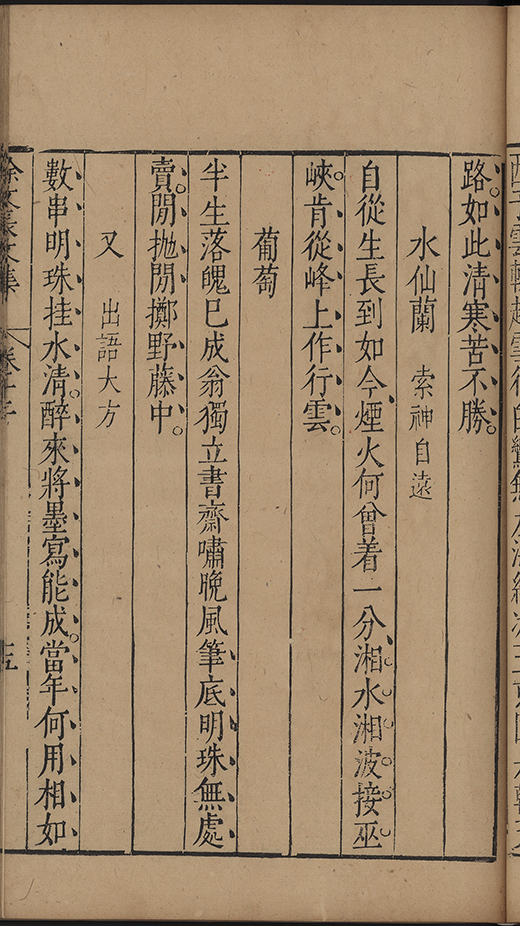 路如此清寒苦不勝
水仙蘭 索神自遠
自從生長到如今煙火何曾着一分湘水湘波接巫
峽肯從峰上作行雲
葡萄
半生落魄已成翁獨立書齋嘯晚風筆底明珠無處
賣閒拋閒擲野藤中
又 出語大方
數串明珠挂水清醉來將墨寫能成當年何用相如
徐文長文集